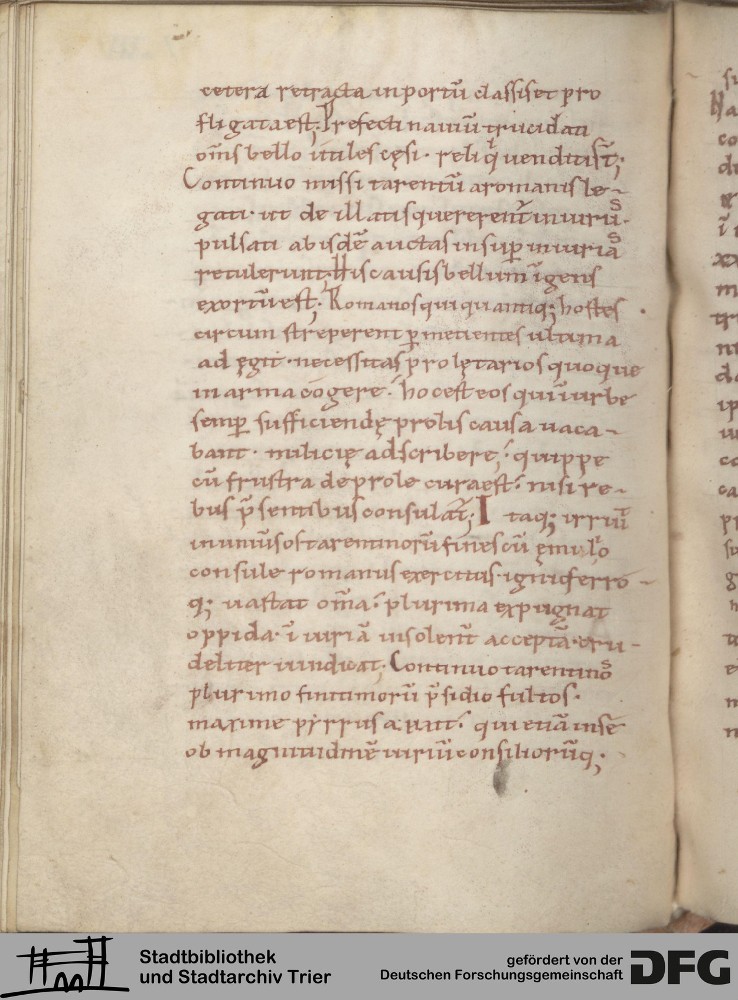 cetera retracta inportū classis et pro
fligata est; Prefecti nauiū trucidati
om̄s bello utiles cęsi· reliq; uenditi st̄;
Continuo missi tarentū aromanis le-
gati· ut de illatis quererent̄ iniuriis·
pulsati ab isdē auctas insuꝑ iniurias
retulerunt; His causis bellum īgens
exortū est; Romanos qui quantiq; hostes
circum streperent ꝑmetientes ultima
ad ęgit· necessitas prolętarios quoque
in arma cogere· hoc est eos qui ī urbe
semꝑ sufficiendę prolis causa uaca-
bant· milicię adscribere; quippe
cū frustra de prole cura est· nisi re-
bus p̄sentibus consulat̄; I taq; irruit
in uniūsos tarentinorū fines cū ęmilio
consule romanus exercitus· igni ferro-
q; uastat om̄a· plurima expugnat
oppida· ī iuriā insolent̄ acceptā· cru-
deliter uindicat; Continuo tarentinos
plurimo finitimorū p̄sidio fultos·
maxime pyrrus auxit· qui etiā in sē
ob magnitudinē uiriū consiliorūq;
Stadtbibliothek
und Stadtarchiv Trier
gefördert von der
Deutschen Forschungsgemeinschaft
DFG